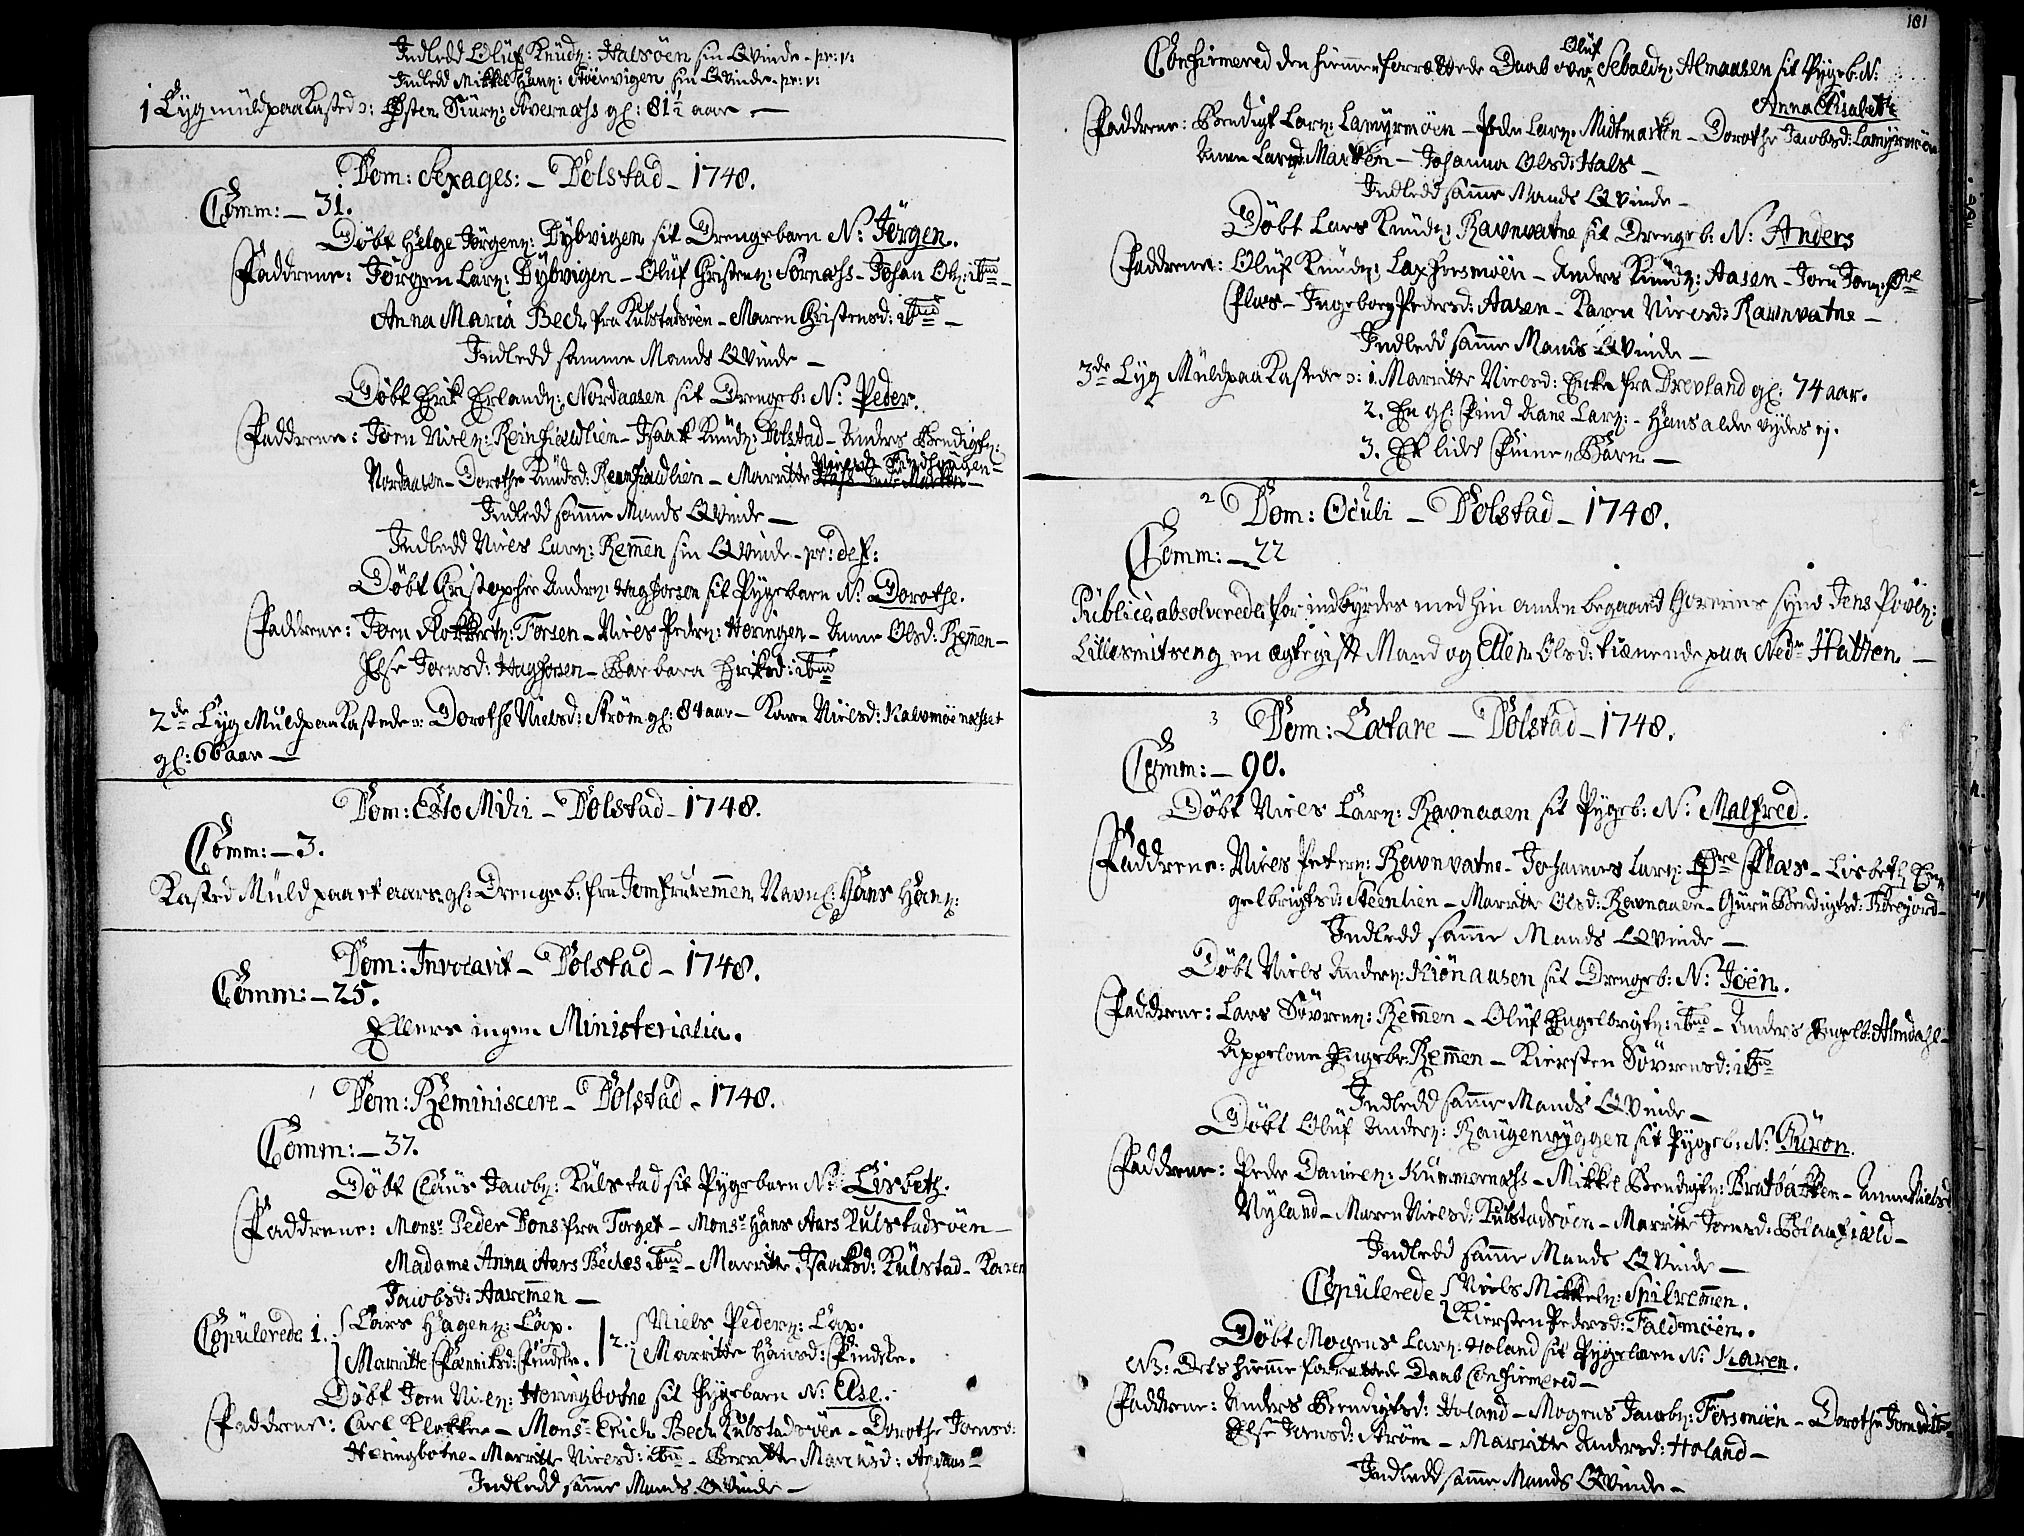 Indledd Olüf Knüdz: Halsöen sin Qvinde - pr: v:
Indledd Mikkel Hanz: Störvigen sin Qvinde - pr: v:
1 Lyg müld paa Kasted ɔ: Østen Siürz: Qvernæss gl: 81½ aar —
Dom: Sexages: - Dolstad - 1748.
Comm: — 31.
Döbt Helge Jörgenz: Dybvigen sit Drengebarn N: Jörgen.
Faddrene: Jörgen Larz: Dybvigen - Olüf Christenz: Sörnæss - Johan Olz: ibid -
Anna Maria Bech fra Külstadsöen - Maren Christensd: ibid -
Indledd samme Mands Qvinde —
Döbt Erik Erlandz: Nordaasen sit Drengeb: N: Peder.
Faddrene: Joen Nielz: Reinfiældlien - Isaak Knüdz: Dolstad - Anders Bendigtz:
Nordaasen - Dorothe Knüdsd: Reinfiældlien - Marritte
Indledd samme Mands Qvinde —
Indledd Niels Larz: Remmen sin Qvinde - pr: def:
Döbt Christopher Anderz: Hagforsen sit Pygebarn N: Dorothe.
Faddrene: Joen Rokkertz: Forsen - Niels Pederz: Heringen - Anne Olsd: Remmen -
Else Jonsd: Hagforsen - Barbara Eriksd: ibid
2de Lyg Müld paa Kastede ɔ: Dorothe Nielsd: Ström gl: 84 aar - Karen Nielsd: Kalvmöenæsset
gl: 66 aar —
Dom: Esto Mihi - Dolstad - 1748.
Comm: — 3.
Kasted Müld paa et aars gl: Drengeb: fra Jomfruremmen Navnl: Hans Hanz:
Dom: Invocavit - Dolstad - 1748.
Comm: — 25.
Ellers ingen Ministerialia.
Dom: Reminiscere - Dolstad - 1748.
Comm: — 37.
Döbt Claüs Jacobz: Külstad sit Pygebarn N: Lisbeth.
Faddrene: Monsr Peder Dons fra Torget - Monsr Hans Aars Külstadsöen -
Madame Anna Aars Beches ibid - Marritte Isaaksd: Külstad - Karen
Jacobsd: Aaremmen —
Copülerede 1. Lars Hagenz: Lap. 2. Niels Pederz: Lap.
Marritte Pænniksd: Findeke. Marritte Hansd: Findeke.
Döbt Joen Nielz: Heringbotne sit Pygebarn N: Else.
Faddrene: Carl Klokker - Monsr Erich Bech Külstadsöen - Dorothe Jonsd:
Heringbotne - Marritte Nielsd: ibid - Berritte Marcusd:
Indledd samme Mands Qvinde —
101
Confirmered den hiemme forrettede Daab over Olüf Sebaldz: Almaasen sit Pygeb: N:
Anna Elisabeth
Faddrene: Bendigt Larz: Lamyrmöen - Peder Larz: Midtmarken - Dorothe Jacobsd: Lamyrmöen
Anne Larsd: Marken - Johanna Olsd: Hals —
Indledd samme Mands Qvinde —
Döbt Lars Knüdz: Ravnvatne sit Drengeb: N: Anders
Faddrene: Olüf Knüdz: Laxforsmöen - Anders Knüdz: Aasen - Joen Jonz: Øvre
Plas - Ingeborg Pedersd: Aasen - Karen Nielsd: Ravnvatne —
Indledd samme Mands Qvinde —
3de Lyg Müld paa Kastede ɔ: 1. Marritte Nielsd: Enke fra Drevland gl: 74 aar.
2. En gl: Find Kane Larz: - Hans alder vides ej.
3. Et lidet Finne-Barn —
Dom: Oculi - Dolstad - 1748.
Comm: — 22
Publice absolverede for indbyrdes med hin anden begaaed Horeries synd Jens Povelz:
Lillesmitseng en ægtegift Mand og Ellen Olsd: tiænende paa Nedr Hatten. —
Dom: Lætare - Dolstad - 1748.
Comm: — 90.
Döbt Niels Larz: Ravnaaen sit Pygeb: N: Malfred.
Faddrene: Niels Peterz: Ravnvatne - Johannes Larz: Øvre Plas - Lisbeth En-
gelbrigtsd: Steenlien - Marritte Olsd: Ravnaaen - Gürü Bendigtsd:
Indledd samme Mands Qvinde —
Döbt Niels Anderz: Kiönaasen sit Drengeb: N: Joen.
Faddrene: Lars Sövrenz: Remmen - Olüf Engelbrigtz: ibid - Anders Engelb: Almdahl -
Appelone Engelb: Remmen - Kiersten Sövrensd: ibid
Indledd samme Mands Qvinde —
Döbt Olüf Anderz: Haugenryggen sit Pygeb: N: Güron.
Faddrene: Peder Danielz: Kümmernæss - Mikkel Bendigtz: Bratbakken - Anne Nielsd:
Nyland - Maren Nielsd: Külstadsöen - Marritte Jonsd: Blaafiæld -
Indledd samme Mands Qvinde —
Copülerede Niels Mikkelz: Spilremmen.
Kiersten Pedersd: Faldmöen.
Döbt Mogens Larz: Holand sit Pygebarn N: Karen.
NB: Dets hiemme forrettede Daab Confirmered —
Faddrene: Anders Bendigtsd: Holand - Mogens Jacobz: Forsmöen - Dorothe Jonsd: ibid -
Else Jonsd: Ström - Marritte Andersd: Holand -
Indledd samme Mands Qvinde —